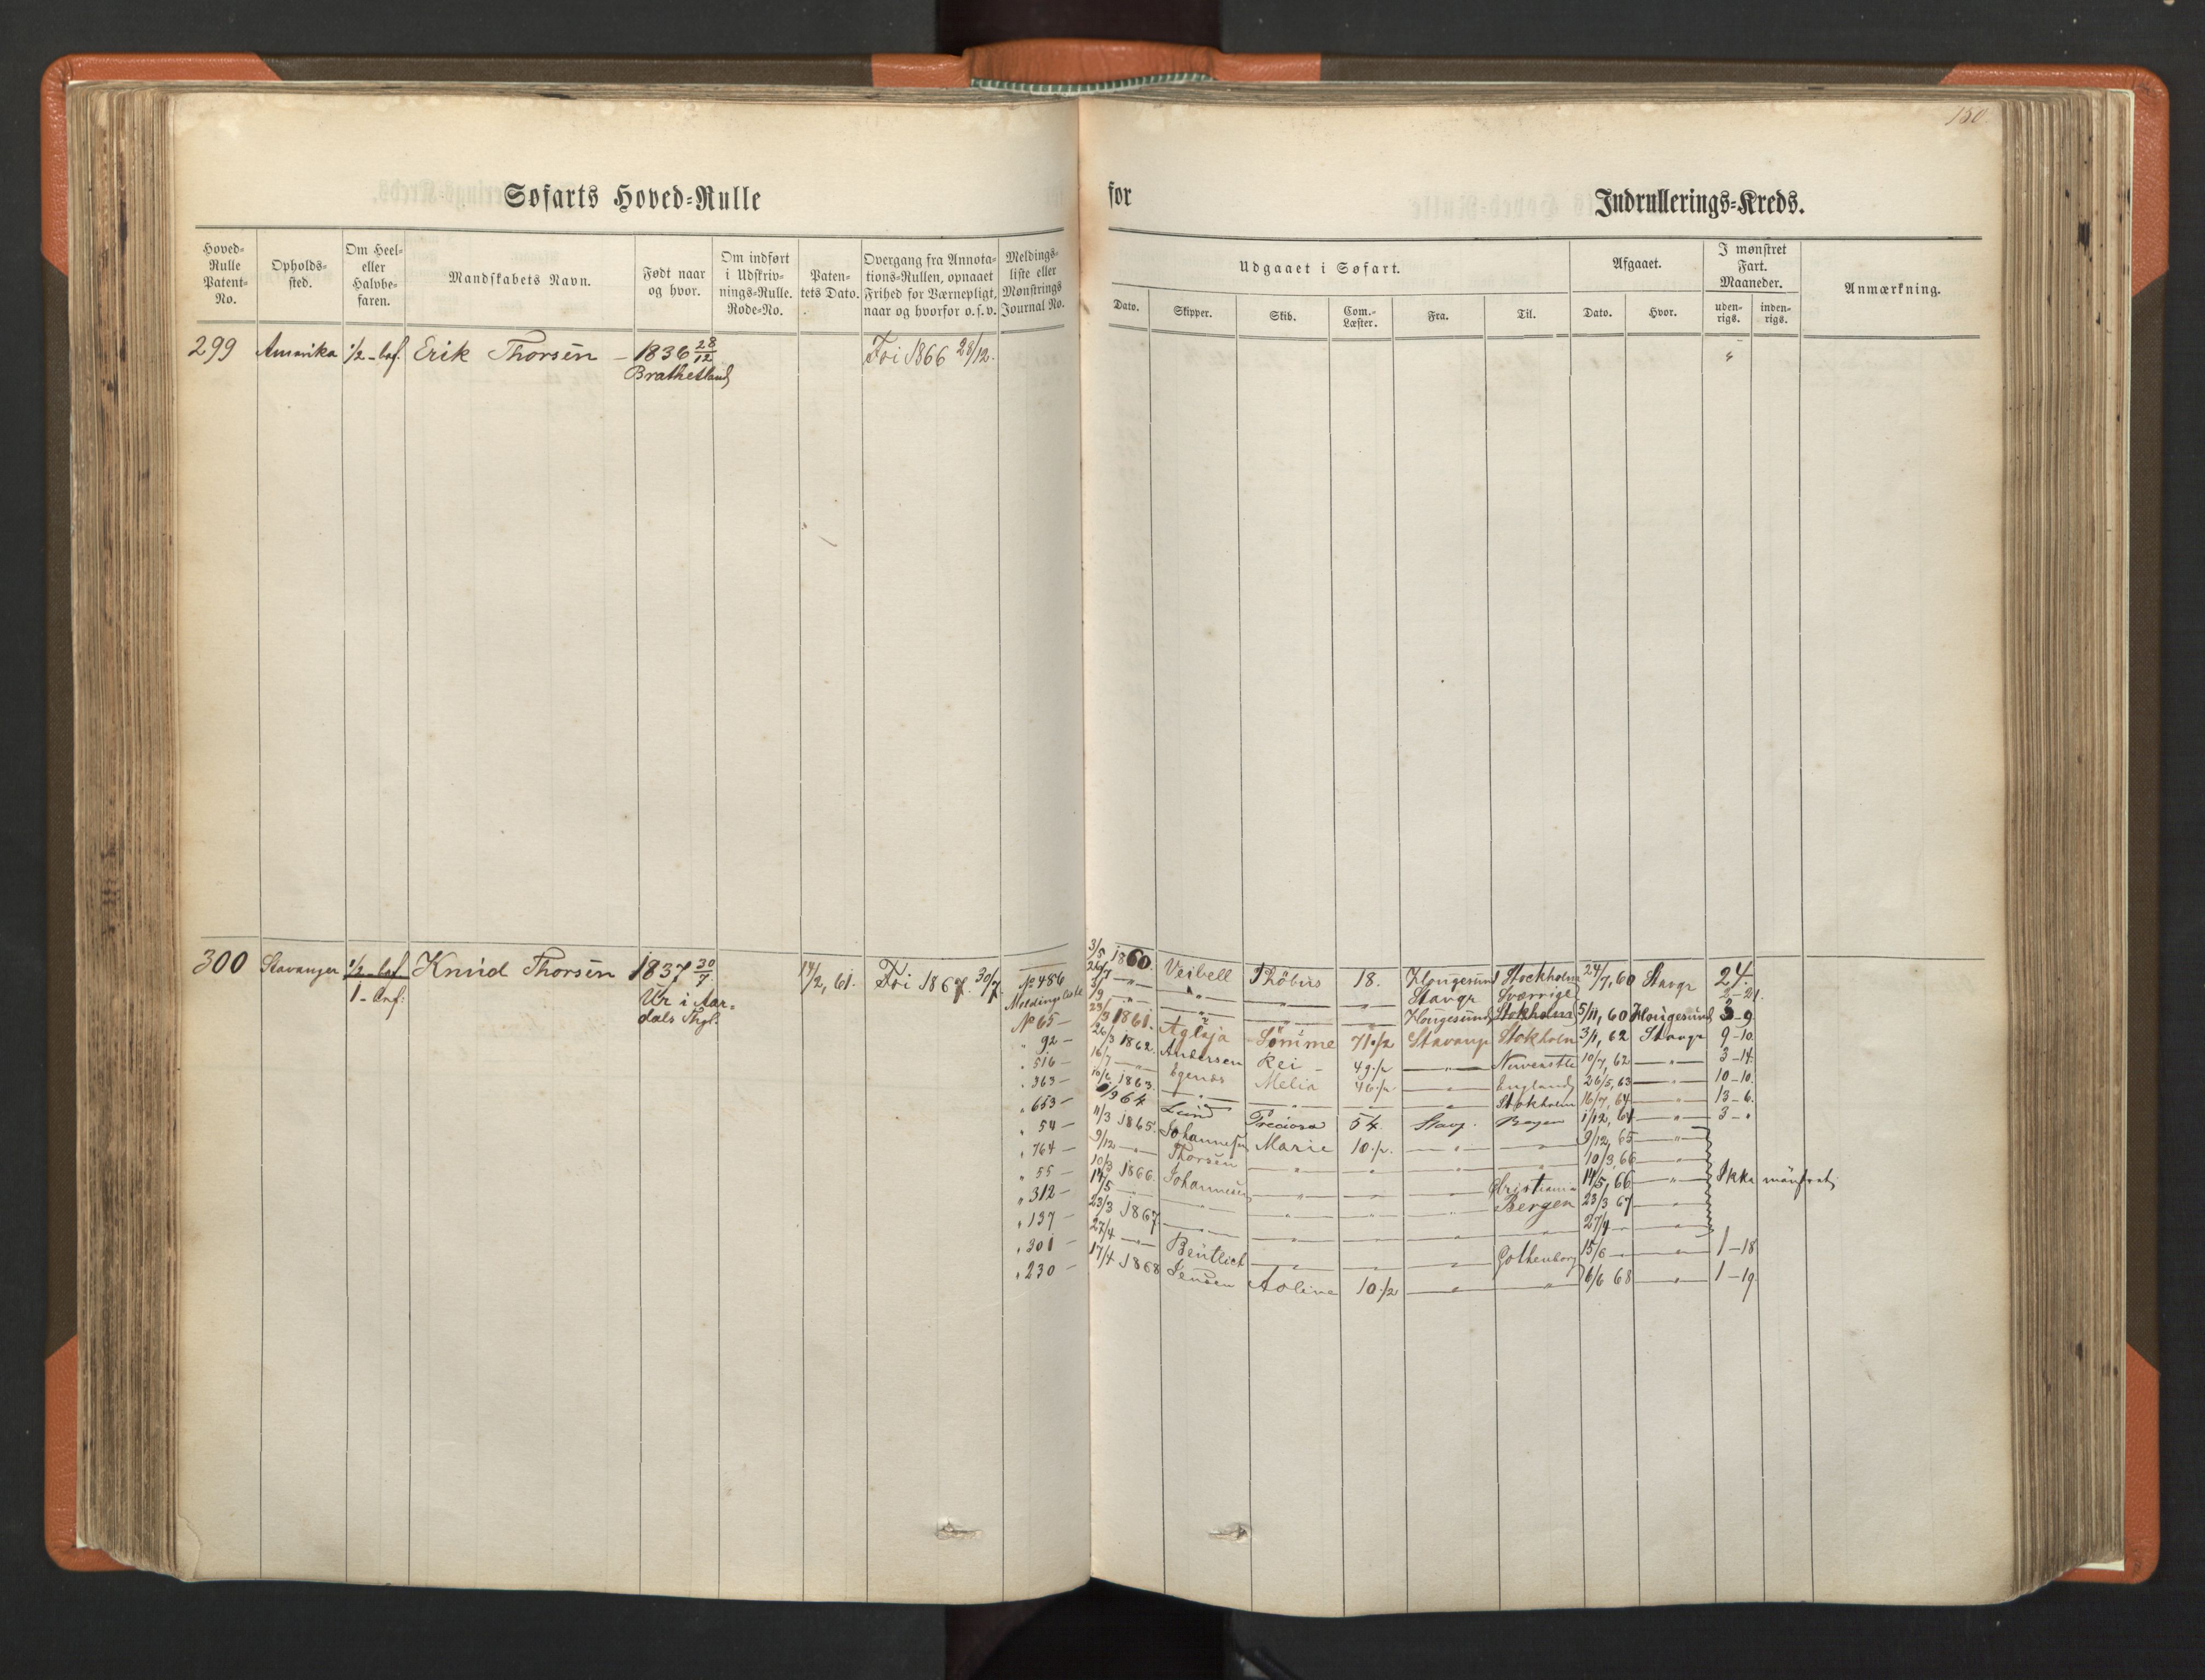 150
Søfarts Hoved=Rulle for Indrullerings=Kreds.
Hoved=Rulle Patent=No.
Opholds=sted.
Om Heel= eller Halvbe=faren.
Mandskabets Navn.
Født naar og hvor.
Om indført i Udskriv=nings=Rulle. Rode=No.
Paten=tets Dato.
Overgang fra Annota=tions=Rullen, opnaaet Frihed for Værnepligt, naar og hvorfor o.s.v.
Meldings=liste eller Mønstrings Journal No.
Udgaaet i Søfart.
Dato. Skipper. Skib. Com.=Læster. Fra. Til.
Afgaaet.
Dato. Hvor.
I mønstret Fart. Maaneder.
uden=rigs. inden=rigs.
Anmærkning.
299 Amerika 1/2-bef. Erik Thorsen - 1836 28/12 Fri 1866 28/12. "
Brathetland
300 Stavanger 1/2-bef Knud Thorsen 1837 30/7 14/2, 61. Fri 1867. 30/7 No 486 3/5 1860. Veibell Phöbus 18. Hougesund Stockholm 24/7, 60 Stavgr 24.
1-bef: Ur i Aar=dals Thgl. Meldingsliste 26/7 -"- -"- -"- -"- Stavgr Sverrige 2-21.
No 65 - -"- -"- -"- -"- Hougesund Stokholm 5/11, 60 Hougesund 3-9
" 92 - 1861. Aglaja Sömme 71 1/2 Stavang Stokholm 3/1, 62 Stavgr 9-10
" 516 - 26/3 1862. Andersen Rei - 49 1/2 -"- Newcastle 10/7, 62 -"- 3-14.
" 363 - 16/7 -"- Egenæs Melia 46 1/2 -"- England 26/5, 63 -"- 10-10.
" 653 - 1863. -"- -"- -"- -"- Stokholm 16/7, 64 -"- 13-6.
" 54 - 64 Lund Preciosa 54. Stavg. Bergen 1/12, 64 -"- 3-"
" 764 - 11/3 1865. Johannesen Marie 10 1/2. -"- -"- 9/12, 65 -"-
" 55 - 9/12 -"- Thorsen -"- -"- -"- -"- 10/3, 66 -"-
" 312 - 10/3 1866. Johannesen -"- -"- -"- Christiania 14/5, 66 -"- Ikke mönstret
" 137 - 14/5 -"- -"- -"- -"- -"- Bergen 23/3 67 -"-
" 301 - 23/3 1867 -"- -"- -"- -"- -"- 27/4 -"- -"-
27/4 -"- Bentlich -"- -"- -"- Gothenborg 15/6 -"- -"- 1-18
" 230 - 17/4 1868 Jensen Aoline 10 1/2 -"- -"- 16/6 68 -"- 1-19.